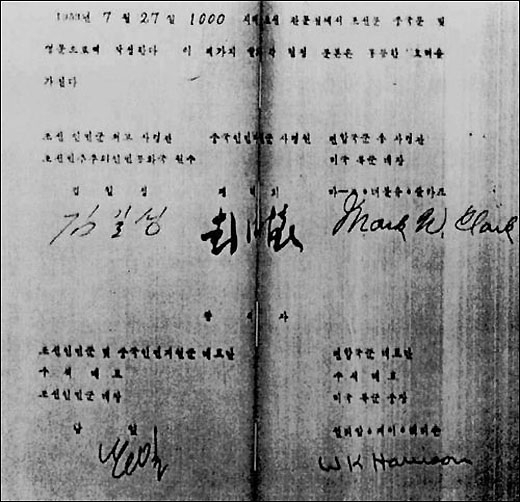 1953년 7월 27일 1000 시에 조선 판문점에서 조선문 중국문 및
영문으로써 작성한다 이 세가지 말의 각 협정 문본은 동등한 효력을
가진다
조선 인민군 최고 사령관 중국인민지원군 사령원 련합국군 총 사령관
조선민주주의인민공화국 원수 미국 륙군 대장
김 일 성 팽 덕 회 마-크•더블유•클라크
김일성 Mark W. Clark
참 석 자
조선인민군 및 중국인민지원군 대표단 련합국군 대표단
수석 대표 수석 대표
조선인민군 대장 미국 륙군 중장
남 일 윌리암•케이•해리슨
남일 W K Harrison